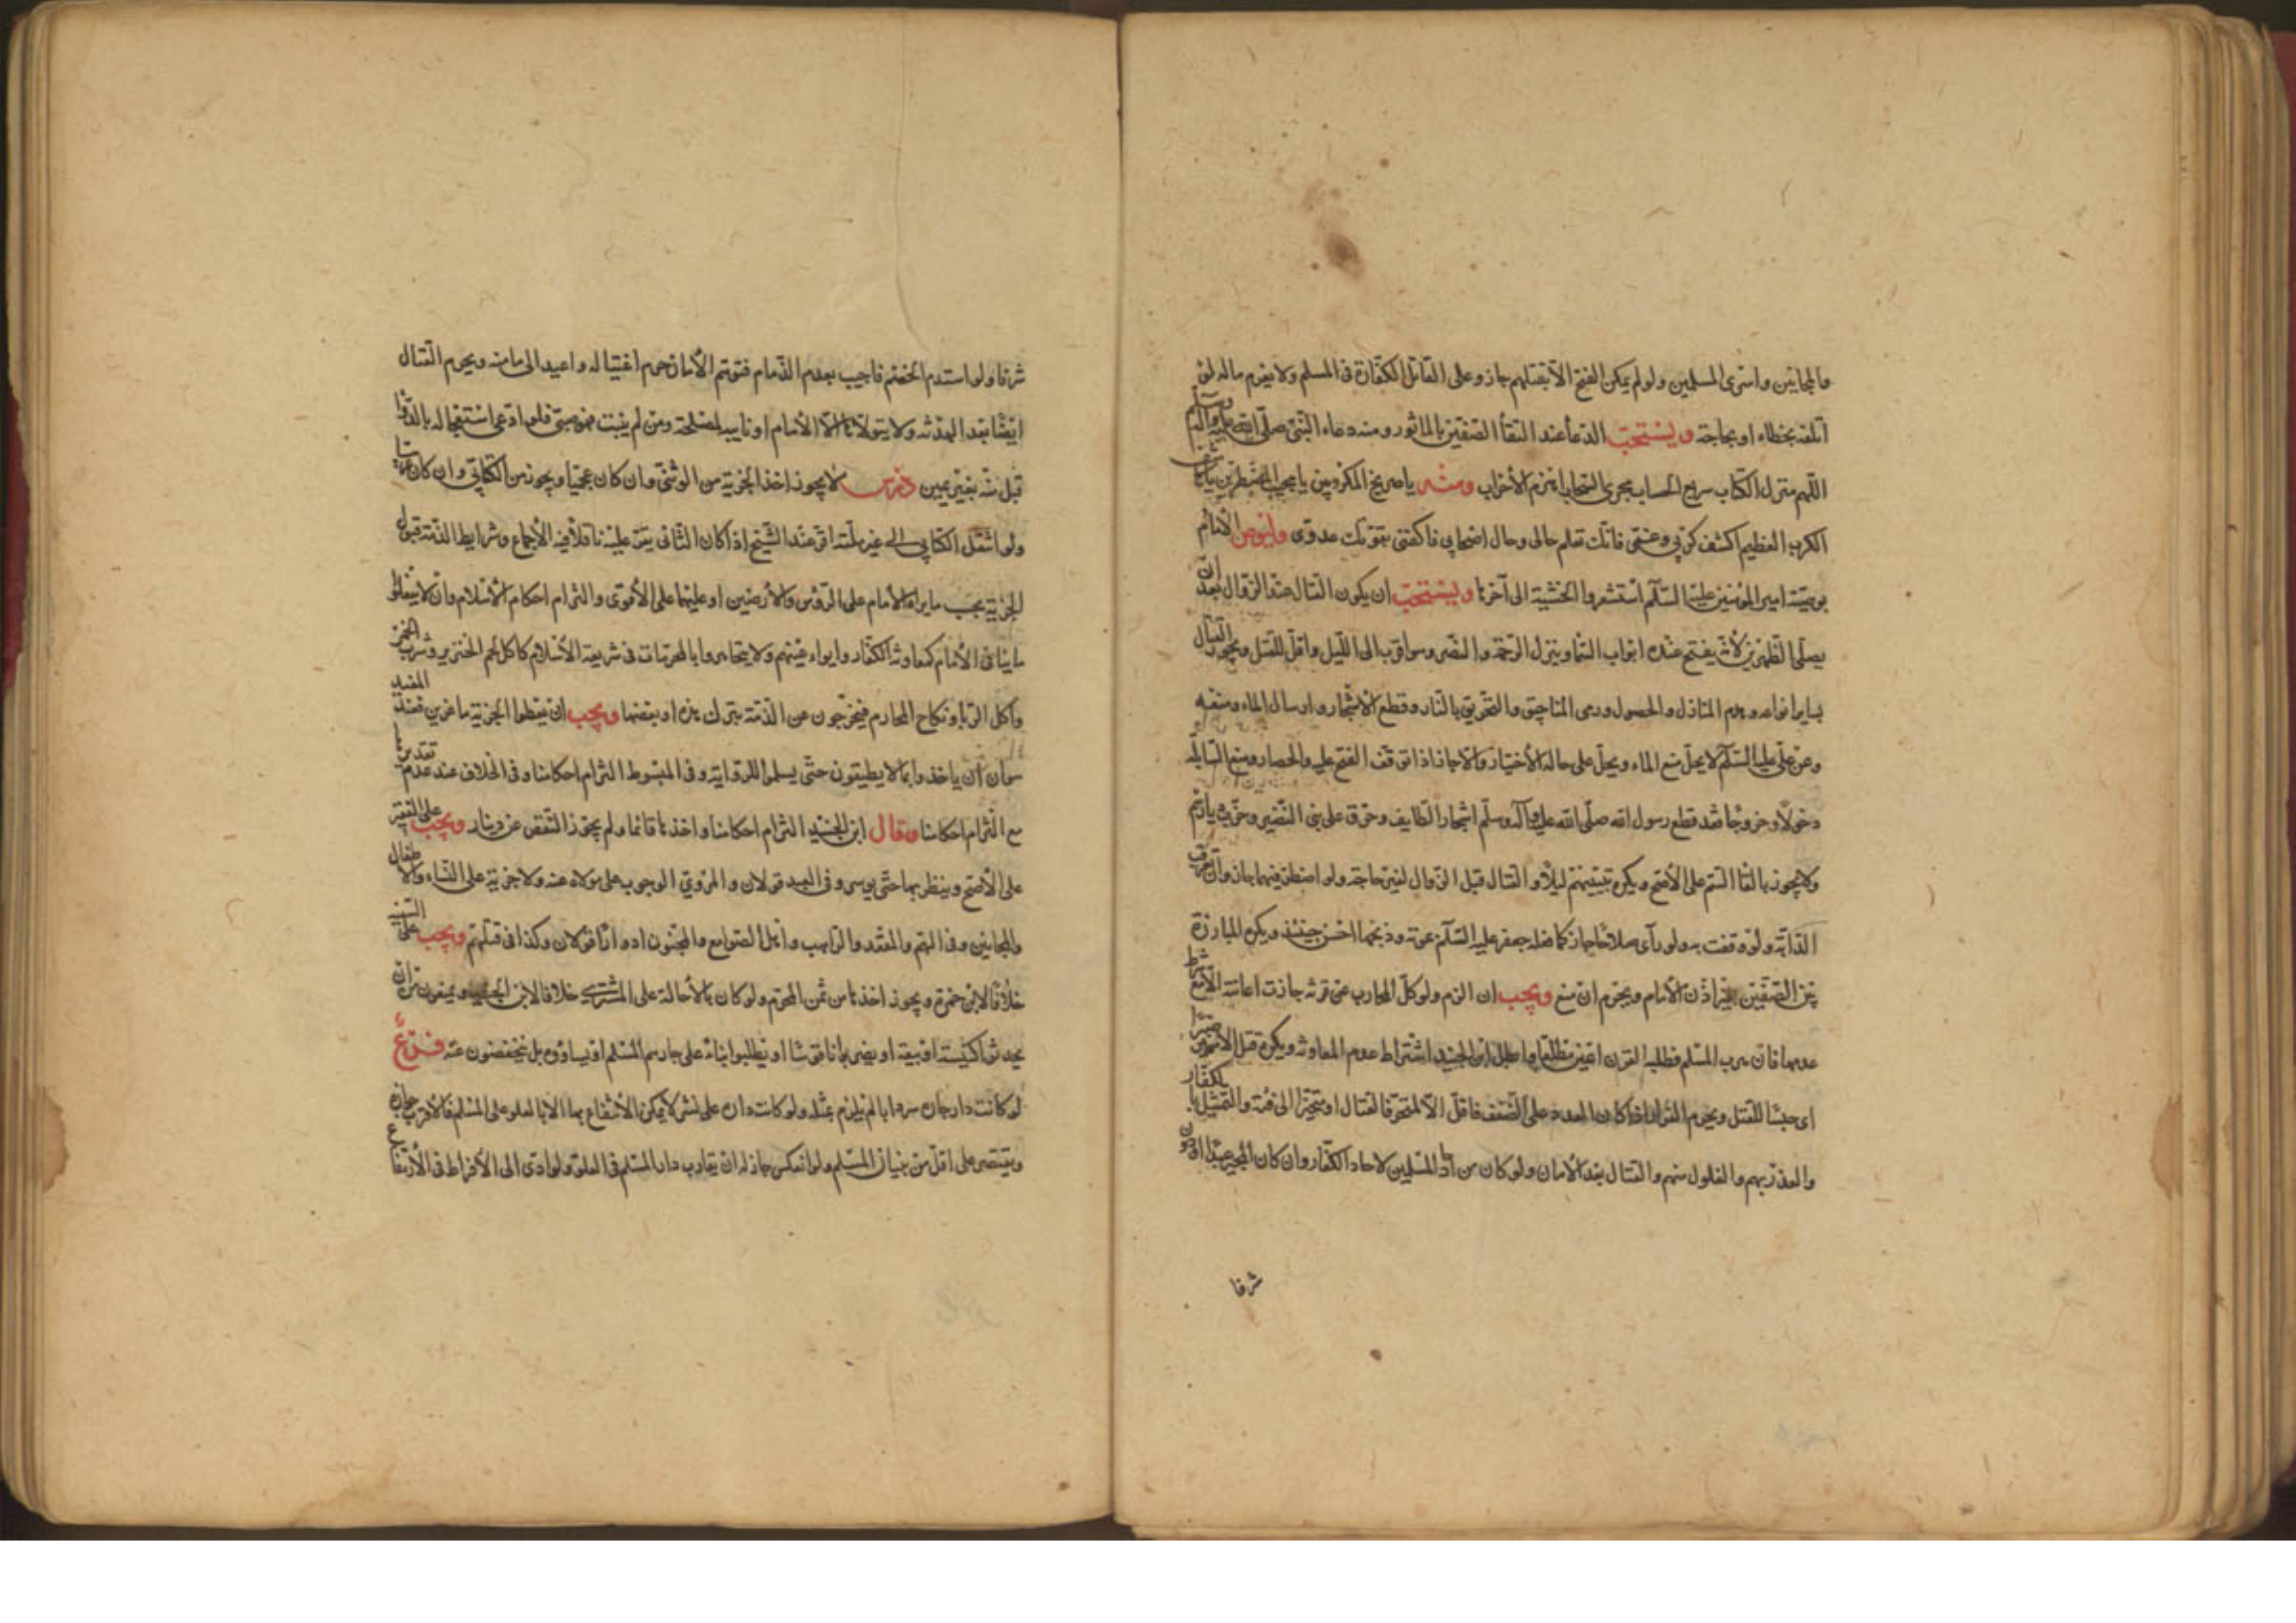 والمجانين واسرى المسلمين ولو لم يمكن الفتح الا بقتلهم جاز وعلى القاتل الكفارة فى المسلم ولا يغرم ماله لو
اتلفه بخطاء او بحاجة ويستحب الدعاء عند التقاء الصفين بالماثور ومنه دعاء النبى صلى الله عليه واله وسلم
اللهم منزل الكتاب سريع الحساب مجرى السحاب اهزم الاحزاب ومنه يا صريخ المكروبين يا مجيب المضطرين يا كاشف
الكرب العظيم اكشف كربي وغمى فانك تعلم حالى وحال اصحابي فاكفنى بقوتك عدوى وليوص الامام
بوصية امير المؤمنين عليه السلام استشعروا الخشية الى آخرها ويستحب ان يكون القتال عند الزوال بعد ان
يصلى الظهرين لانه يفتح عنده ابواب السماء وينزل الرحمة والنصر وسواقرب الى الليل واقل للقتل ويجوز القتال
بساير انواعه وهدم المنازل والحصول ورمى المناجيق والتحريق بالنار وقطع الاشجار وارسال الماء ومنعه
وعن على عليه السلام لا يحل منع الماء ويحل على حاله الاختيار والا جاز اذا توقف الفتح عليه والحصار ومنع السابلة
دخولا وخروجا فقد قطع رسول الله صلى الله عليه وآله وسلم اشجار الطايف وحرق على بنى النضير وخرب ديارهم
ولا يجوز بالقاء السم على الاصح ويكره تبييتهم ليلا والقتال قبل الزوال لغير حاجة ولو اضطر فيهما جاز وان تعرقب
الدابة ولو وقفت به ولو رآى صلاحا جاز كما فعله جعفر عليه السلام عوته وذبحها احسن حينئذ ويكره المبارزة
بين الصفين بغير اذن الامام ويحرم ان منع ويجب ان الزم ولو كل المحارب عن قرنه جازت اعانته الا مع شرط
عدمها فان هرب المسلم فطلبه القرن اعين مطلقا وابطل ابن الجنيد اشتراط عدم المعاونة ويكره قتل الاسير صبرا
اى حبسا للقتل ويحرم الفرار اذا كان العدد على الضعف فاقل الا لمتحرف لقتال او متحيزا الى فئة والتمثيل بالكفار
والغدر بهم والغلول منهم والقتال بعد الامان ولو كان من آحاد المسلمين لاحاد الكفار وان كان المجير عبدا او دون
شرفا
شرفا ولو استذم الخصم فاجيب بعدم الذمام فتوهم الامان حرم اغتياله واعيد الى مامنه ويحرم القتال
ايضا بعد الهدنة ولا يتولاها الا الامام او نايبه لمصلحة ومن لم ينبت فهو صبى فلو ادعى استعجاله بالدواء
قبل منه بغير يمين درس لا يجوز اخذ الجزية من الوثنى وان كان عجميا ويجوز من الكتابي وان كان عربيا
ولو انتقل الكتابي الى غير ملته اقر عند الشيخ اذا كان الثانى يقر عليه ناقلا فيه الاجماع وشرايط الذمة قبول
الجزية بحسب ما يراه الامام على الرؤس والارضين او عليهما على الاقوى والتزام احكام الاسلام وان لا يفعلوا
ما ينافى الامام كمعاونة الكفار وايواء عينهم ولا يتجاهروا بالمحرمات فى شريعة الاسلام كاكل لحم الخنزير وشرب الخمر
واكل الربا ونكاح المحارم فيخرجون عن الذمة بترك هذه او بعضها ويجب ان يعطوا الجزية صاغرين فعند المفيد
هوان ان ياخذوا بما لا يطيقون حتى يسلموا للرواية وفى المبسوط التزام احكامنا وفى الخلاف عند عدم تقديرها
مع التزام احكامنا وقال ابن الجنيد التزام احكامنا واخذها قائما ولم يجوز النقص عن دينار ويجب على الفقير
على الاصح وينظر بها حتى يوسر وفى العبد قولان والمروي الوجوب على مولاه عنه ولا جزية على النساء والاطفال
والمجانين وفى الهم والمقعد والراهب واهل الصوامع والمجنون ادوارا قولان وكذا فى قتلهم ويجب على السفيه
خلافا لابن حمزة ويجوز اخذها من ثمن المحرم ولو كان بالاحالة على المشترى خلافا لابن الجنيد ويمنعون من ان
يحدثوا كنيسة او بيعة او يضربوا ناقوسا او يطلبوا بناء على جارهم المسلم او يساووه بل ينخفضون عنه فرع
لو كانت دار جاره سردابا لم يلزم بمثله ولو كانت داره على نشز لا يمكن الانتفاع بها الا بالعلو على المسلم فالاقرب جوازه
ويقتصر على اقل من بنيان المسلم ولو انعكس جاز له ان يقارب دار المسلم فى العلو ولو ادى الى الافراط فى الارتفاع